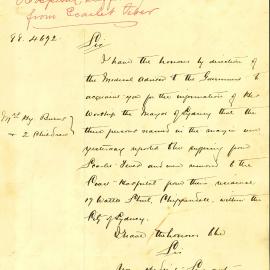 Hospital
from Scarlet Fever
98. 4692.
Sir
I have the honour by direction
of the Medical Adviser to the Government to
acquaint you for the information of His
Worship the Mayor of Sydney that the
three persons named in the margin were
yesterday reported as suffering from
Scarlet Fever and were removed to the
Coast Hospital from their residence
17 Watts Street, Chippendale, within the
City of Sydney.
My Burns
+ 2 Children
I have the honour to be
Sir